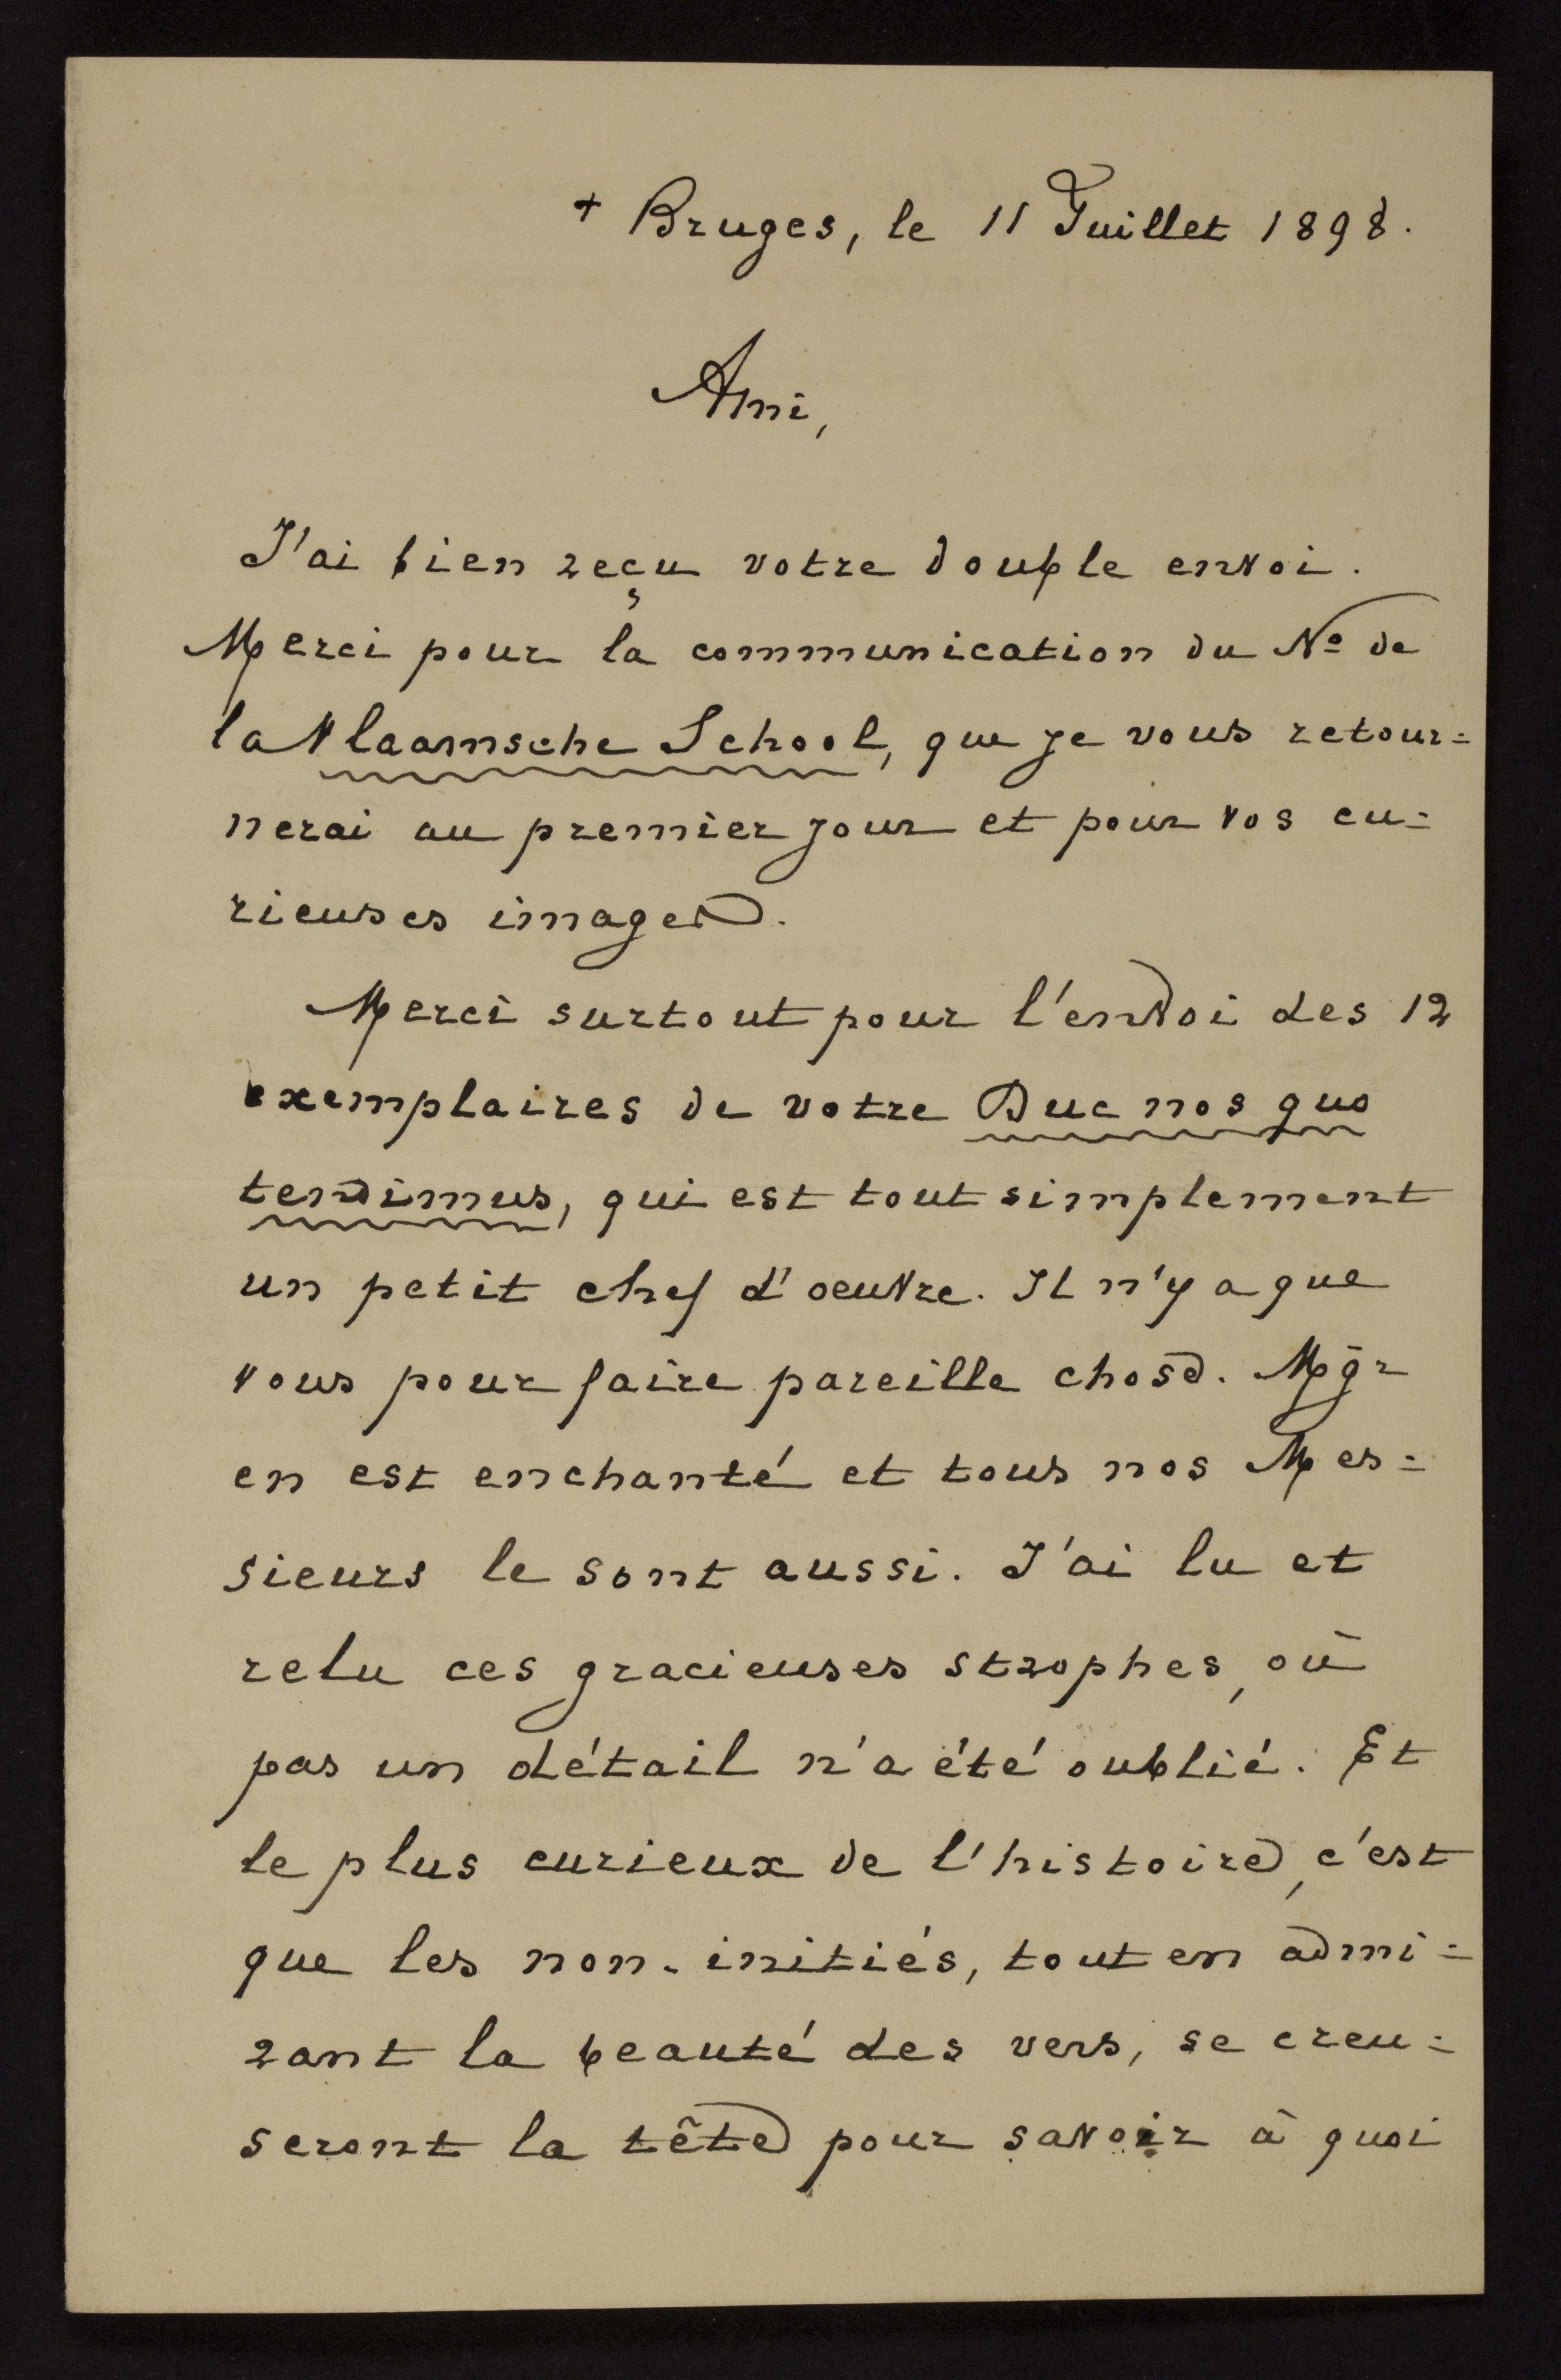 + Bruges, le 11 Juillet 1898.
Ami,
J'ai bien reçu votre double envoi.
Merci pour la communication du Nº de
la Vlaamsche School, que je vous retour=
nerai au premier jour et pour vos cu=
rieuses images.
Merci surtout pour l'envoi des 12
exemplaires de votre Duc nos quo
tendimus, qui est tout simplement
un petit chef d'oeuvre. Il n'y a que
vous pour faire pareille chose. Mgr
en est enchanté et tous nos Mes=
sieurs le sont aussi. J'ai lu et
relu ces gracieuses strophes, où
pas un détail n'a été oublié. Et
le plus curieux de l'histoire, c'est
que les non-initiés, tout en admi=
rant la beauté des vers, se creu=
seront la tête pour savoir à quoi